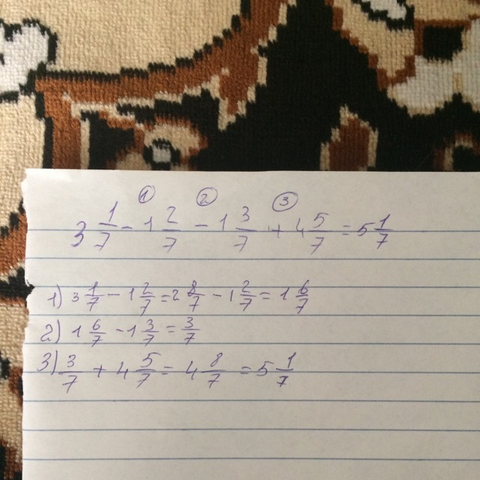 ① ② ③
3 1/7 - 1 2/7 - 1 3/7 + 4 5/7 = 5 1/7
1) 3 1/7 - 1 2/7 = 2 8/7 - 1 2/7 = 1 6/7
2) 1 6/7 - 1 3/7 = 3/7
3) 3/7 + 4 5/7 = 4 8/7 = 5 1/7